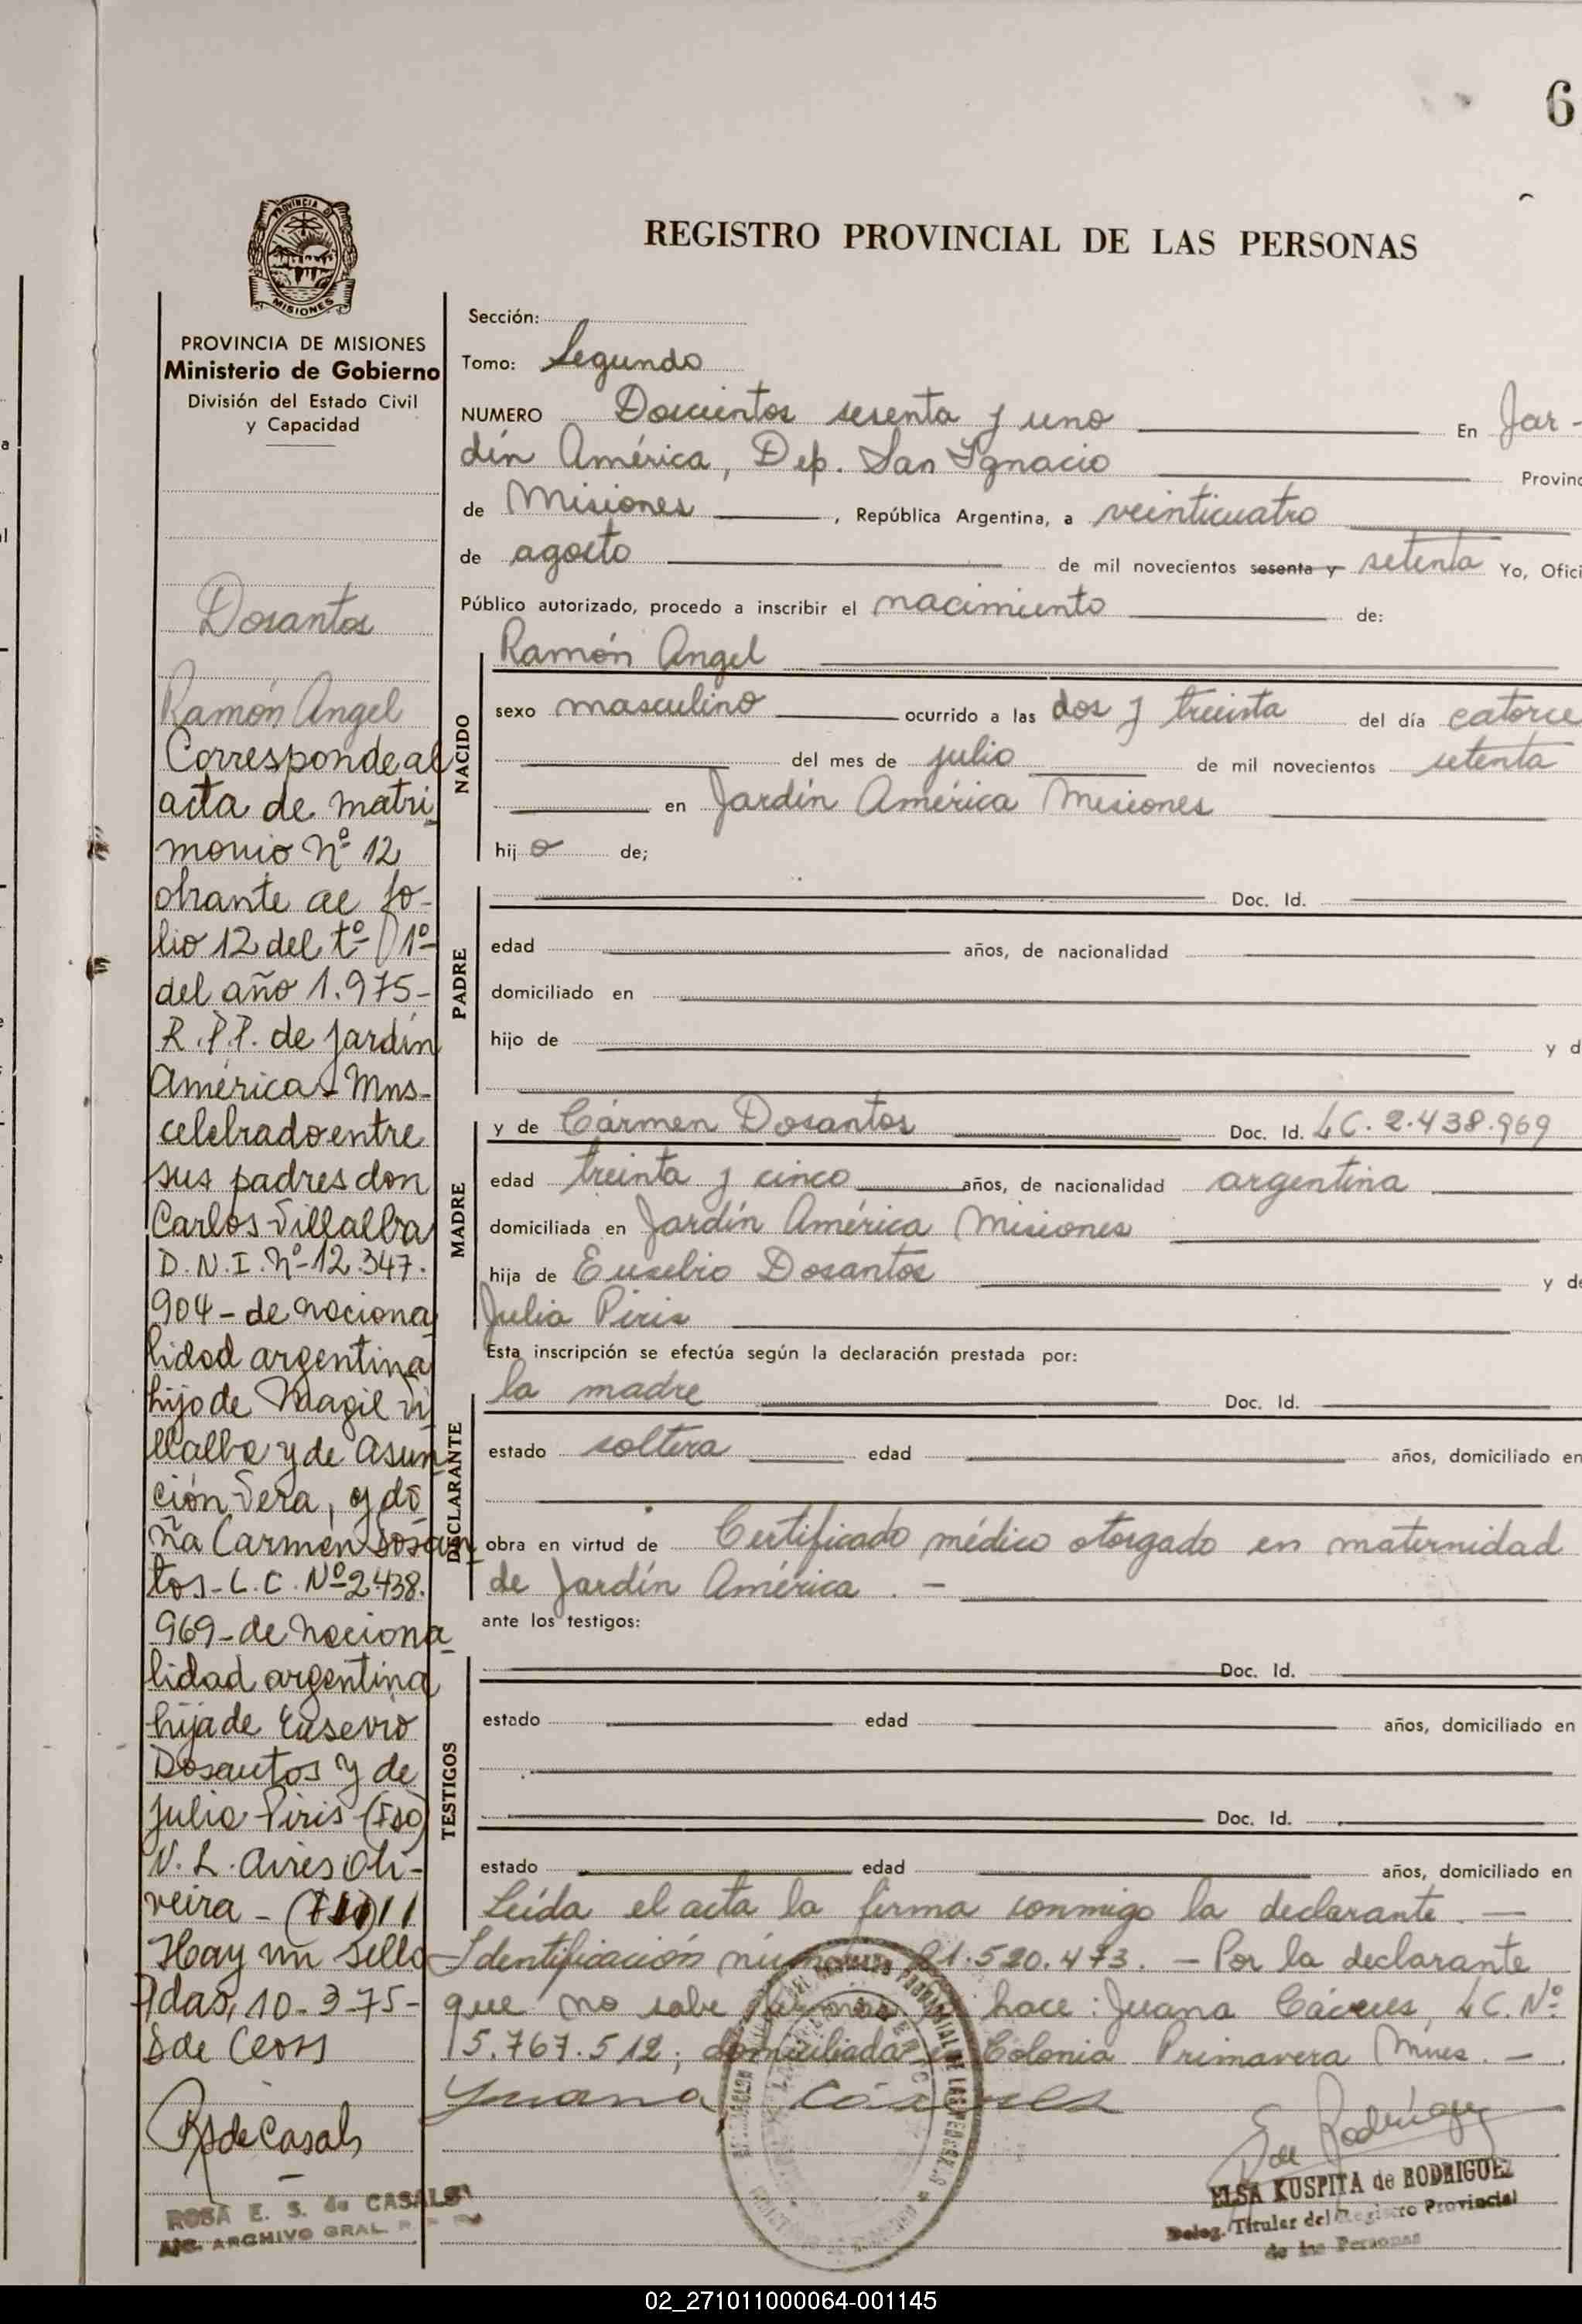 6
REGISTRO PROVINCIAL DE LAS PERSONAS
PROVINCIA DE MISIONES
Ministerio de Gobierno
División del Estado Civil
y Capacidad
Dosantos
Ramón Angel
Corresponde al
acta de matri
monio Nº 12
obrante al fo-
lio 12 del tº 1º
del año 1.975-
R.P.P. de Jardín
América - Mns-
celebrado entre
sus padres don
Carlos Villalba
D.N.I. Nº 12.347.
904 - de naciona
lidad argentina
hijo de Magil Vi
llalba y de Asun
ción Vera, y do
ña Carmen Dosan
tos - L.C. Nº 2438.
969 - de naciona
lidad argentina
hija de Eusevio
Dosantos y de
Julia Piris (Fdo)
N. L. Aires Oli-
veira -
Hay un sello
Pdas, 10-3-75-
RSdeCasals
ROSA E. S. de CASALS
ARCHIVO GRAL
Sección:
Tomo: Segundo
NUMERO Doscientos sesenta y uno En Jar-
dín América, Dep. San Ignacio Provinc
de Misiones , República Argentina, a veinticuatro
de agosto de mil novecientos sesenta y setenta Yo, Ofici
Público autorizado, procedo a inscribir el nacimiento de:
NACIDO
Ramón Angel
sexo masculino ocurrido a las dos y treinta del día catorce
del mes de julio de mil novecientos setenta
en Jardín América Misiones
hij o de;
PADRE
Doc. Id.
edad años, de nacionalidad
domiciliado en
hijo de y d
MADRE
y de Cármen Dosantos Doc. Id. LC. 2.438.969
edad treinta y cinco años, de nacionalidad argentina
domiciliada en Jardín América Misiones
hija de Eusebio Dosantos y de
Julia Piris
Esta inscripción se efectúa según la declaración prestada por:
DECLARANTE
la madre Doc. Id.
estado soltera edad años, domiciliado en
obra en virtud de Certificado médico otorgado en maternidad
de Jardín América . -
ante los testigos:
TESTIGOS
Doc. Id.
estado edad años, domiciliado en
Doc. Id.
estado edad años, domiciliado en
Leída el acta la firma conmigo la declarante. -
Identificación número 21.520.473. - Por la declarante
que no sabe firmar hace: Juana Cáceres, LC. Nº
5.767.512; domiciliada en Colonia Primavera Mnes. -
Juana Cáceres
E de Rodríguez
ELSA KUSPITA de RODRIGUEZ
Deleg. Titular del Registro Provincial
de las Personas
02_271011000064-001145